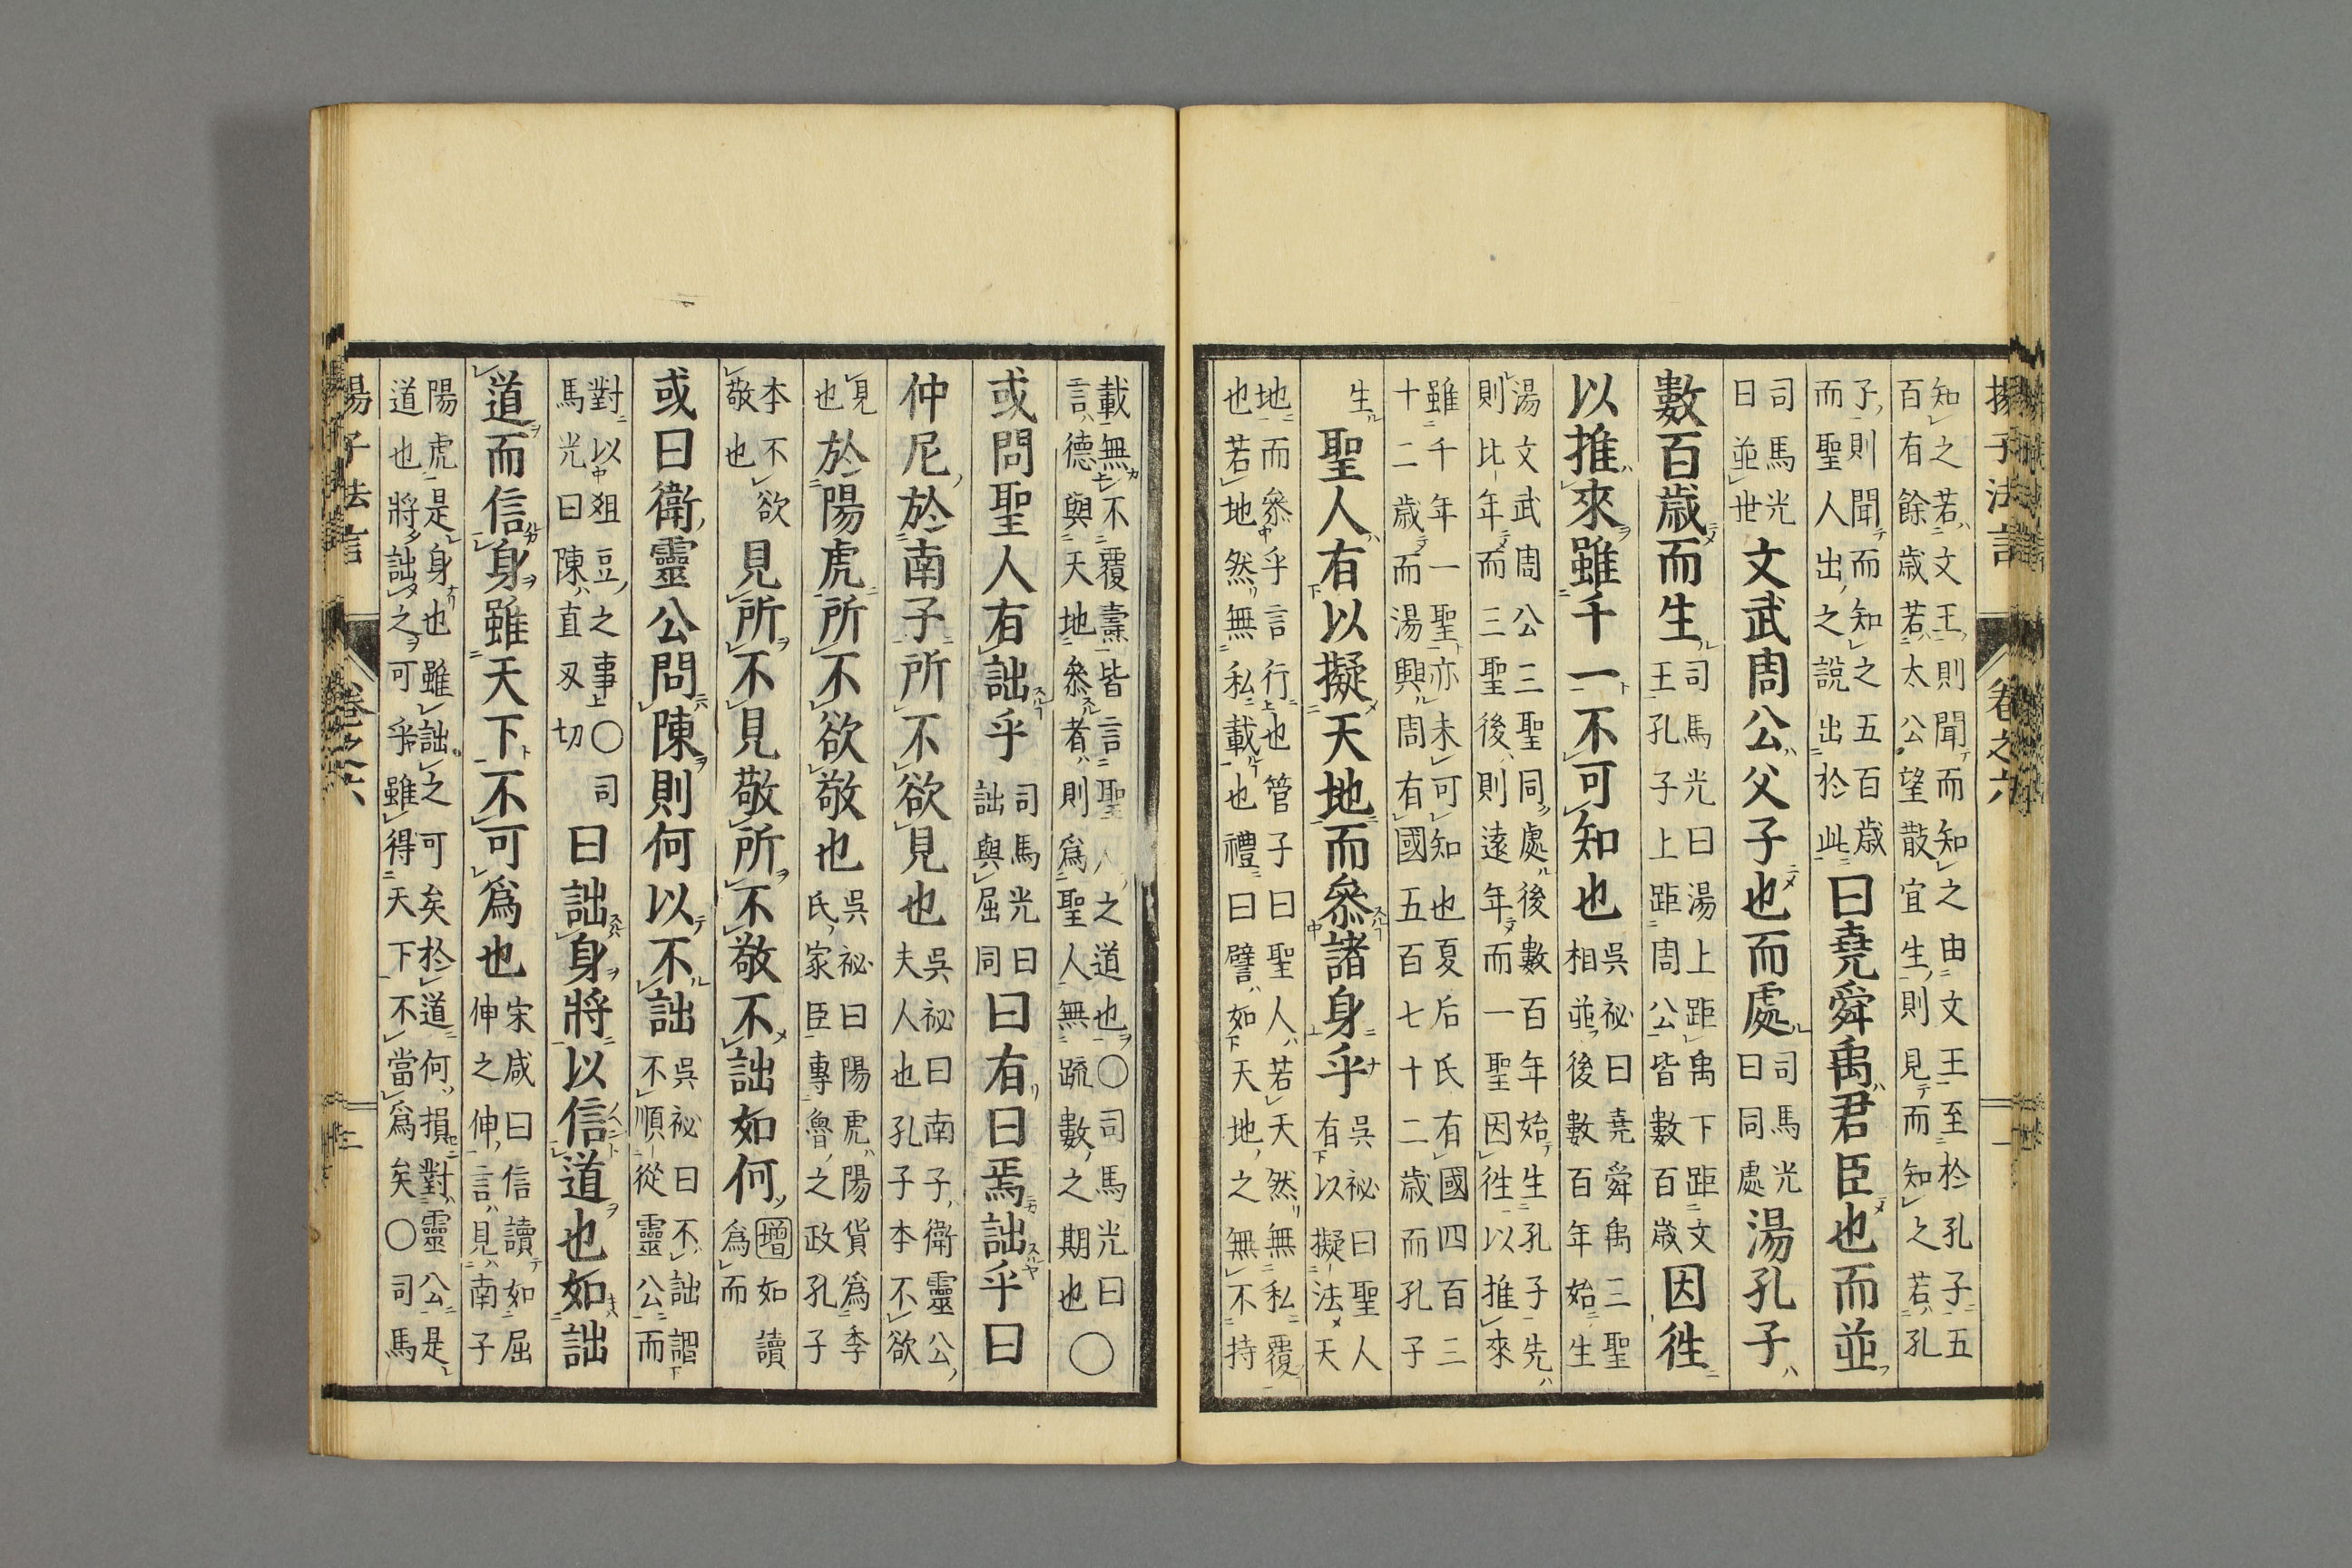 揚子法言 卷之六 一
知之若文王則聞而知之由文王至於孔子五
百有餘歲若太公望散宜生則見而知之若孔
子則聞而知之五百歲
而聖人出之說出於此
曰堯舜禹君臣也而並
司馬光
曰並世
文武周公父子也而處
司馬光
曰同處
湯孔子
數百歲而生
司馬光曰湯上距禹下距文
王孔子上距周公皆數百歲
因徃
以推來雖千一不可知也
吳祕曰堯舜禹三聖
相並後數百年始生
湯文武周公三聖同處後數百年始生孔子先
則比年而三聖後則遠年而一聖因徃以推來
雖千年一聖亦未可知也夏后氏有國四百三
十二歲而湯興周有國五百七十二歲而孔子
生
聖人有以擬天地而參諸身乎
吳祕曰聖人
有以擬法天
地而參乎言行也管子曰聖人若天然無私覆
也若地然無私載也禮曰譬如天地之無不持
載無不覆燾皆言聖人之道也○司馬光曰
言德與天地參者則爲聖人無疏數之期也
○
或問聖人有詘乎
司馬光曰
詘與屈同
曰有曰焉詘乎曰
仲尼於南子所不欲見也
吳祕曰南子衛靈公
夫人也孔子本不欲
見
也
於陽虎所不欲敬也
吳祕曰陽虎陽貨爲季
氏家臣專魯之政孔子
本不欲
敬也
見所不見敬所不敬不詘如何
增如讀
爲而
或曰衛靈公問陳則何以不詘
吳祕曰不詘謂
不順從靈公而
對以俎豆之事○司
馬光曰陳直刃切
曰詘身將以信道也如詘
道而信身雖天下不可爲也
宋咸曰信讀如屈
伸之伸言見南子
陽虎是身也雖詘之可矣於道何損對靈公是
道也將詘之可乎雖得天下不當爲矣○司馬
揚子法言 卷之六 二